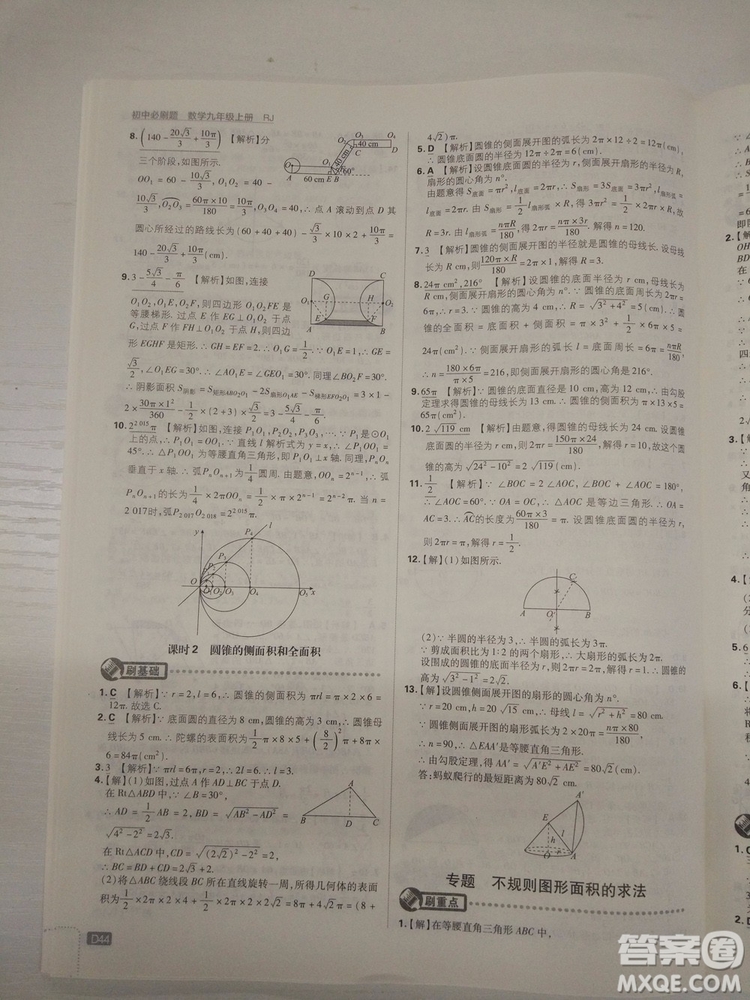 初中必刷题 数学九年级上册 RJ
8. (140 - 20√3/3 + 10π/3) 【解析】分
三个阶段,如图所示.
OO₁ = 60 - 10√3/3, O₁O₂ = 40 -
10√3/3, O₂O₃ = 60π×10/180 = 10π/3, ∴ 点 A 滚动到点 O₄
圆心所经过的路线长为 (60 + 40 + 40) - 10√3/3 × 2 + 10π/3 =
140 - 20√3/3 + 10π/3 (cm).
9. 3 - 5√3/4 - π/6 【解析】如图,连接
O₁O₂, O₁E, O₂F, 则四边形 O₁O₂FE 是
等腰梯形. 过点 E 作 EG⊥O₁O₂,
过点 F 作 FH⊥O₁O₂, ∴ 四边
形 EGHF 是矩形. ∴ GH = EF = 2. ∴ O₁G = 1/2. ∵ O₁E = 1, ∴ GE =
√3/2, ∴ O₁G/O₁E = 1/2, ∴ ∠O₁EG = 30°. ∴ ∠AO₁E = ∠GEO₁ = 30°. 同理, ∠BO₂F = 30°.
∴ 阴影面积 S阴影 = S矩形ABO₂O₁ - 2S扇形O₁AE - S梯形EFO₂O₁ = 3×1 -
2 × 30π×1²/360 - 1/2 × (2 + 3) × √3/2 = 3 - 5√3/4 - π/6.
10. 2^2015 π 【解析】如图,连接 P₁O₁, P₂O₂, P₃O₃, ∵ P₁是⊙O₁
上的点, ∴ P₁O₁ = OO₁. ∵ 直线 l 解析式为 y = x, ∴ ∠P₁OO₁ =
45°. ∴ △P₁OO₁ 为等腰直角三角形,即 P₁O₁⊥x 轴. 同理, PₙOₙ
垂直于 x 轴. ∴ 弧PₙOₙ₊₁ 为 1/4 圆周. 由题意, OOₙ = 2ⁿ⁻¹, ∴ 弧
PₙOₙ₊₁的长为 1/4 × 2π·OOₙ = 1/2 π × 2ⁿ⁻¹ = 2ⁿ⁻²π. 当 n =
2 017时,弧P₂₀₁₇O₂₀₁₈ = 2^2015 π.
课时2 圆锥的侧面积和全面积
刷基础
1. C 【解析】∵ r = 2, l = 6, ∴ 圆锥的侧面积为 πrl = π×2×6 =
12π. 故选 C.
2. C 【解析】∵ 底面圆的直径为 8 cm,圆锥的高为 3 cm, ∴ 圆锥母
线长为 5 cm, ∴ 陀螺的表面积为 1/2 π×8×5 + (8/2)²π + 8π×
6 = 84π(cm²).
3. 3 【解析】∵ πrl = 6π, r = 2, ∴ 2l = 6. ∴ l = 3.
4. 【解】(1)如图,过点 A 作 AD⊥BC 于点 D.
在 Rt△ABD 中, ∵ ∠B = 30°,
∴ AD = 1/2 AB = 2, BD = √(AB² - AD²) =
√(4² - 2²) = 2√3.
在 Rt△ACD 中, CD = √((2√2)² - 2²) = 2,
∴ BC = BD + CD = 2√3 + 2.
(2)将△ABC 绕线段 BC 所在直线旋转一周,所得几何体的表面
积为 1/2 × 4π × 4 + 1/2 × 4π × 2√2 = 8π + 4√2 π = (8 +
4√2)π.
5. D 【解析】圆锥的侧面展开图的弧长为 2π×12÷2 = 12π(cm),
∴ 圆锥底面圆的半径为 12π÷2π = 6(cm).
6. A 【解析】设圆锥的底面半径为 r,侧面展开扇形的半径为 R,
扇形的圆心角为 n°.
由题意得 S底面 = πr², l底面 = 2πr, ∴ S扇形 = 3S底面 = 3πr², l扇形弧 =
l底面 = 2πr. 由 S扇形 = 1/2 l扇形弧 × R, 得 3πr² = 1/2 × 2πr × R, 故
R = 3r. 由 l扇形弧 = nπR/180, 得 2πr = nπ×3r/180. 解得 n = 120.
7. 3 【解析】∵ 圆锥的侧面展开图的半径就是圆锥的母线长,设母线长为
R cm, 则 120π×R/180 = 2π×1, 解得 R = 3.
8. 24π cm², 216° 【解析】设圆锥的底面半径为 r cm,母线长为
R cm,侧面展开图的圆心角为 n°. ∵ 圆锥的底面周长为 2πr =
6π, ∴ r = 3. ∵ 圆锥的高为 4 cm, ∴ R = √(3² + 4²) = 5(cm), ∴ 圆
锥的全面积 = 底面积 + 侧面积 = π×3² + 1/2 × 6π×5 =
24π(cm²). ∵ 侧面展开图的弧长 = 底面周长 = 6π = nπR/180,
∴ n = 180×6π/(π×5) = 216, 即侧面展开图的圆心角是 216°.
9. 65π 【解析】∵ 圆锥的底面直径是 10 cm,高为 12 cm, ∴ 由勾股
定理求得圆锥的母线长为 13 cm. ∴ 圆锥的侧面积为 π×13×5 =
65π(cm²).
10. 2√119 cm 【解析】由题意知圆锥的母线长为 24 cm, 设圆锥
底面圆的半径为 r cm, 则 2πr = 150π×24/180, 解得 r = 10, ∴ 圆
锥的高为 √(24² - 10²) = 2√119 (cm).
11. 1/2 【解析】∵ ∠BOC = 2∠AOC, ∠BOC + ∠AOC = 180°,
∴ ∠AOC = 60°. ∵ OA = OC, ∴ △AOC 是等边三角形. ∴ OA =
AC = 3. ∴ AC的长度为 60π×3/180 = π. 设圆锥底面圆的半径为 r,
则 2πr = π, 解得 r = 1/2.
12. 【解】(1)如图所示.
(2) ∵ 半圆的半径为 3, ∴ 半圆的弧长为 3π.
∵ 剪成面积比为 1:2 的两个扇形, ∴ 大扇形的弧长为 2π.
设围成的圆锥的底面圆半径为 r, 则 2πr = 2π, 解得 r = 1, ∴ 圆锥的高为
√(3² - 1²) = 2√2.
13. 【解】设圆锥侧面展开图的扇形的圆心角为 n°.
∵ r = 20 cm, h = 20√15 cm, ∴ 母线 l = √(r² + h²) = 80 cm.
∵ 圆锥侧面展开图的弧长为 2π×20 = nπ×80/180,
∴ n = 90, ∴ △EAA′ 是等腰直角三角形.
∴ 由勾股定理,得 AA′ = √(A′E² + AE²) = 80√2 cm.
答:蚂蚁爬行的最短距离为 80√2 cm.
专题 不规则图形面积的求法
刷重点
1. 【解】在等腰直角三角形 ABC 中,
D44
答案圈
MXQE.COM